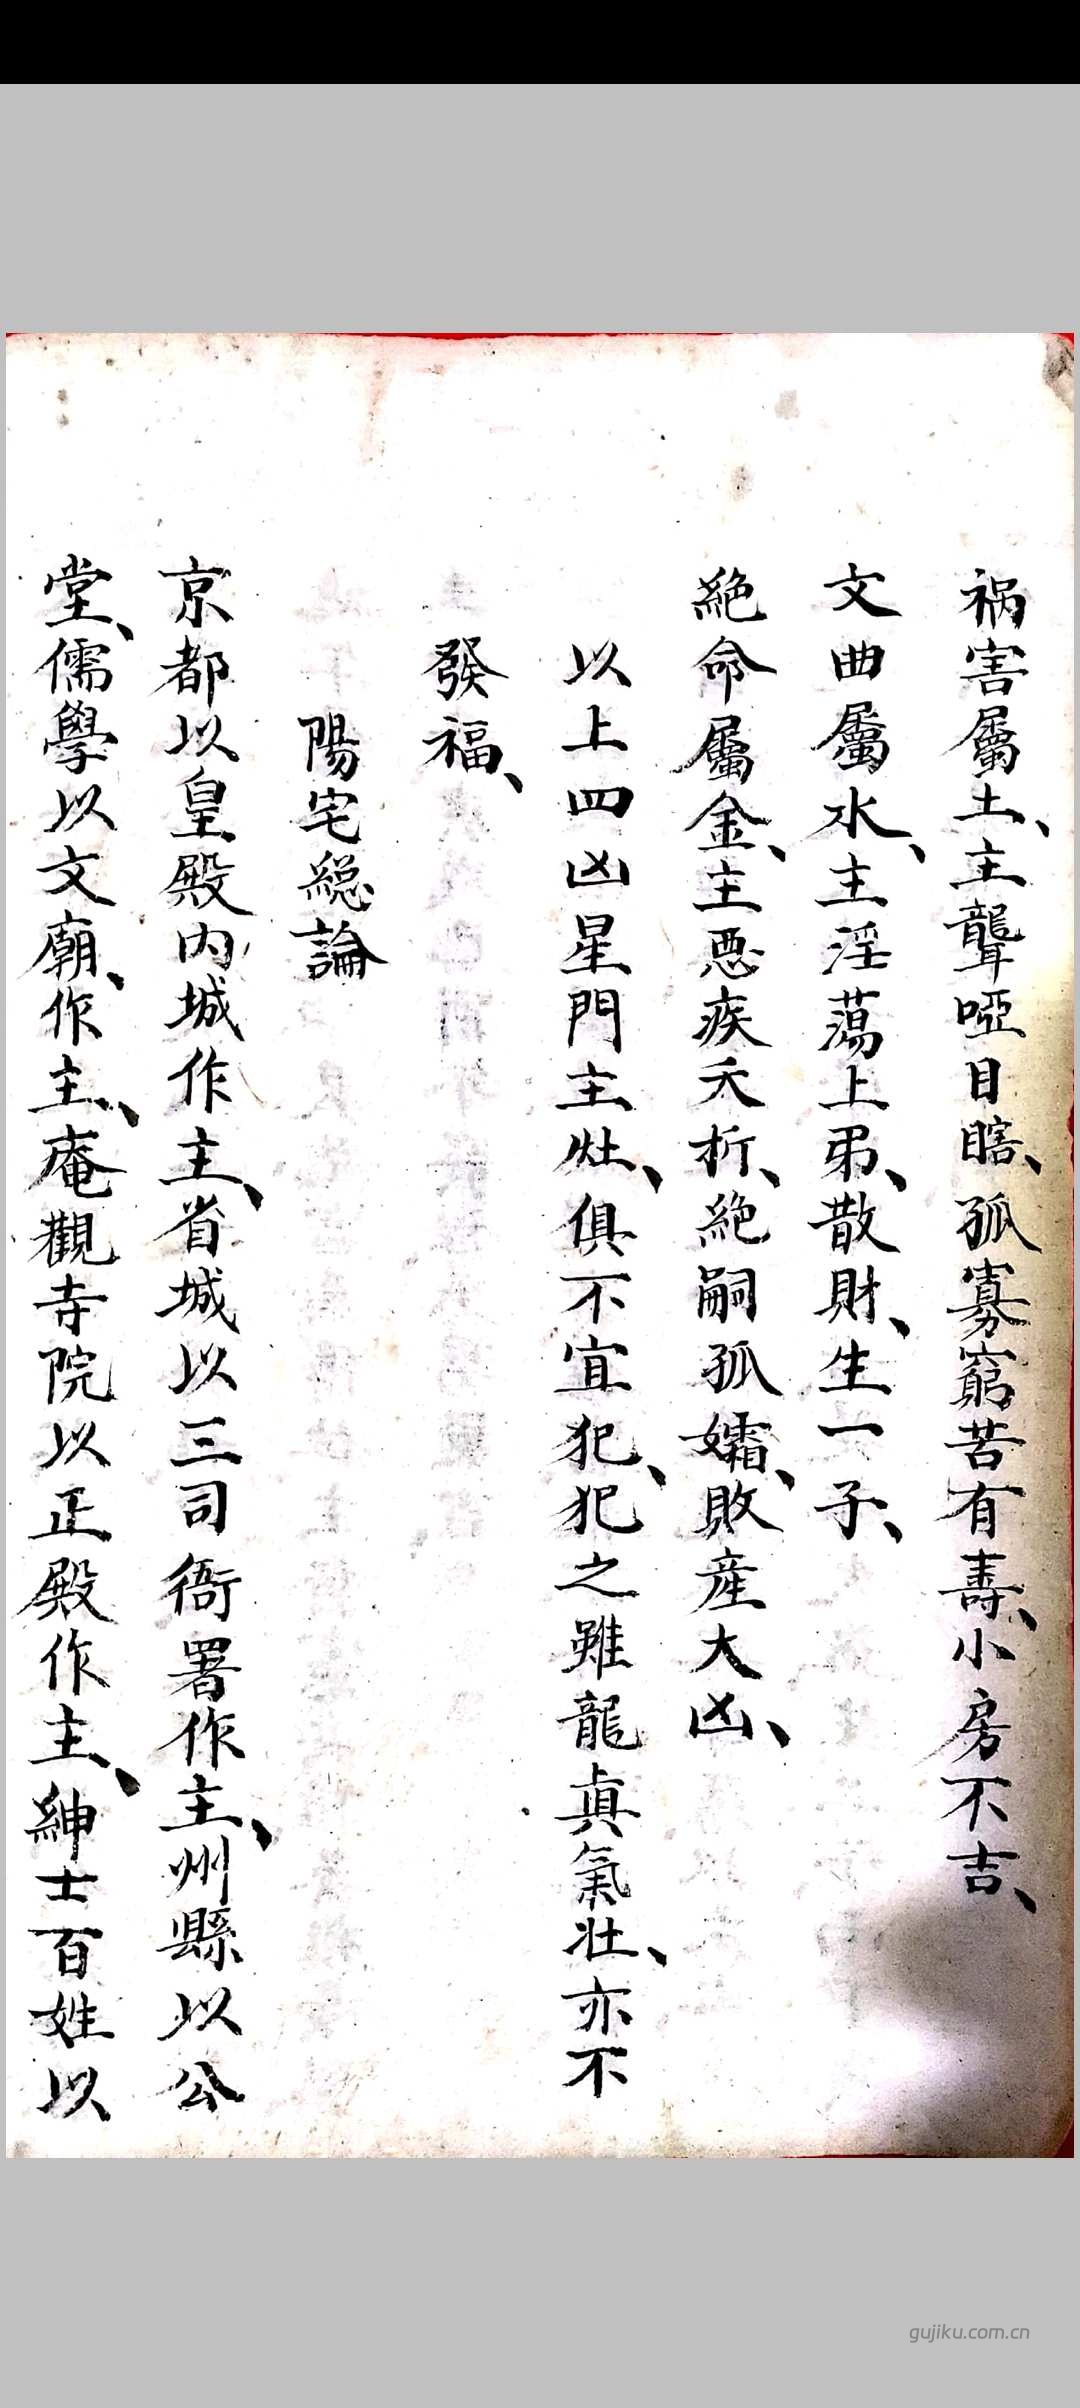 祸害屬土、主聾啞目瞎、孤寡窮苦有壽、小房不吉、
文曲屬水、主淫蕩上弔、散財、生一子、
絕命屬金、主惡疾夭折、絕嗣孤孀、敗産大凶、
以上四凶星門主灶、俱不宜犯、犯之雖龍真氣壯、亦不
發福、
陽宅總論
京都以皇殿内城作主、省城以三司衙署作主、州縣以公
堂、儒學以文廟、作主、庵觀寺院以正殿作主、紳士百姓以
gujiku.com.cn